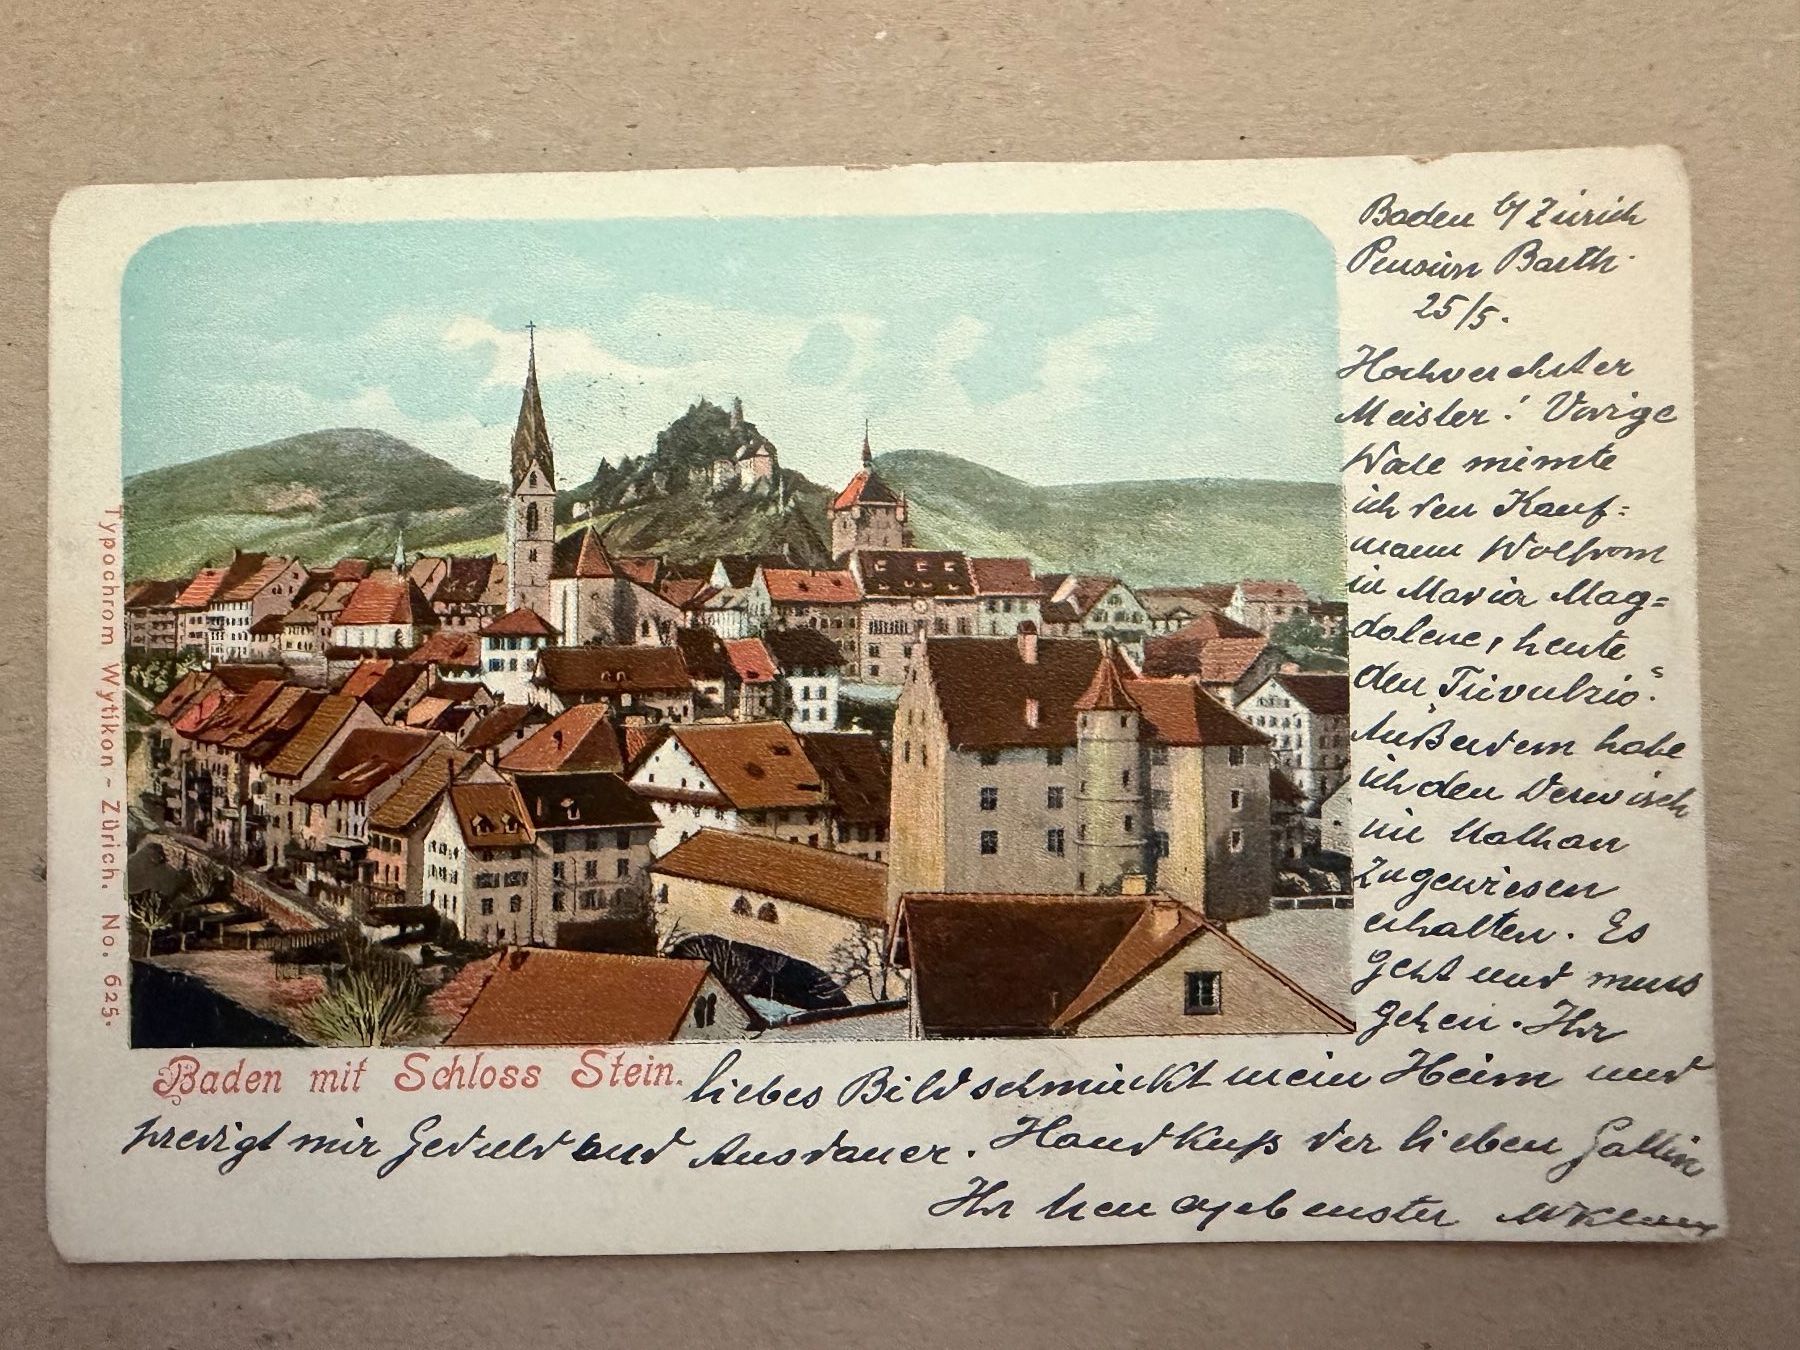 Baden b/ Zürich
Pension Barth.
25/5.
Hochverehrter
Meister! Vorige
Woche mimte
ich den Kauf=
mann Wolfrom
in Maria Mag=
dalene, heute
den „Trivulzio“.
Außerdem habe
ich den Derwisch
im Nathan
zugewiesen
erhalten. Es
geht und muss
gehen. Ihr
liebes Bild schmückt mein Heim und
predigt mir Geduld und Ausdauer. Handkuß der lieben Gattin
Ihr treu ergebenster
Baden mit Schloss Stein.
Typochrom Wytikon - Zürich. No. 625.